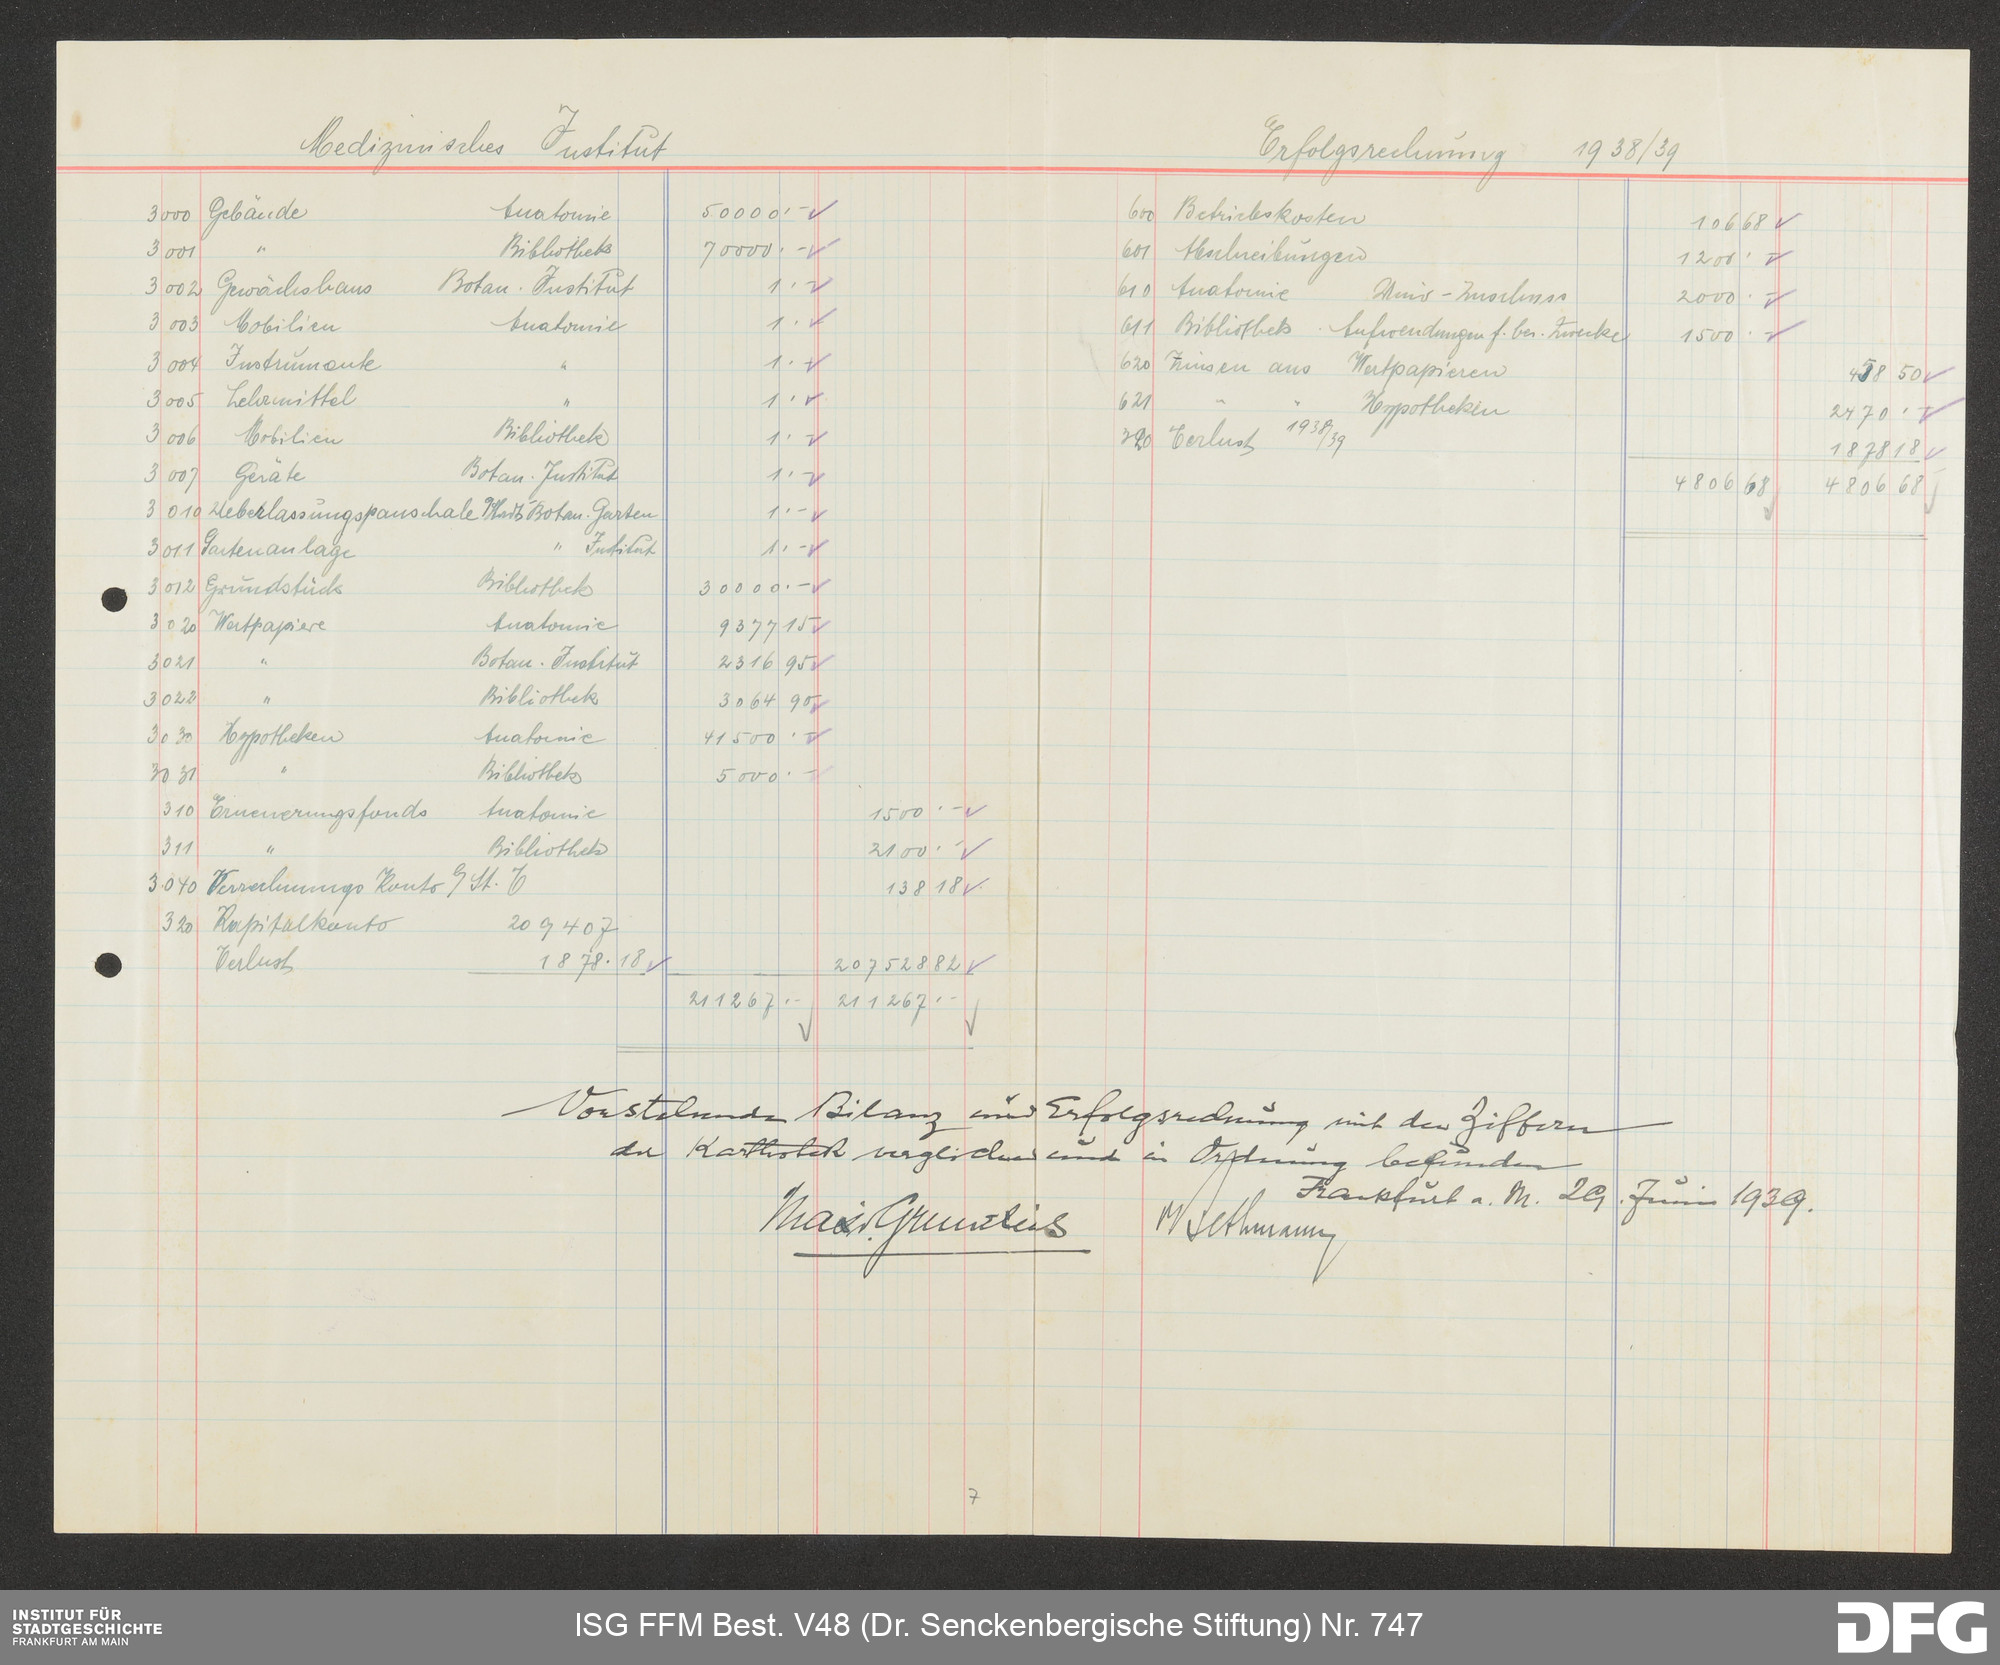 Medizinisches Institut
3000 Gebäude Anatomie 50000.-
3001 " Bibliothek 70000.-
3002 Gewächshaus Botan. Institut 1.-
3003 Mobilien Anatomie 1.-
3004 Instrumente " 1.-
3005 Lehrmittel " 1.-
3006 Mobilien Bibliothek 1.-
3007 Geräte Botan. Institut 1.-
3010 Ueberlassungspauschale Botan. Garten 1.-
3011 Gartenanlage " Institut 1.-
3012 Grundstück Bibliothek 30000.-
3020 Wertpapiere Anatomie 9377 15
3021 " Botan. Institut 2316 95
3022 " Bibliothek 3064 90
3030 Hypotheken Anatomie 41500.-
3031 " Bibliothek 5000.-
310 Erneuerungsfonds Anatomie 1500.-
311 " Bibliothek 2100.-
3040 Verrechnungs Konto 138 18
320 Kapitalkonto 209407
Verlust 1878.18 207528 82
211267.- 211267.-
Erfolgsrechnung 1938/39
600 Betriebskosten 106 68
601 Abschreibungen 1200.-
610 Anatomie Univ-Zuschuss 2000.-
611 Bibliothek. Aufwendungen f. bes. Zwecke 1500.-
620 Zinsen aus Wertpapieren 458 50
621 " " Hypotheken 2470.-
320 Verlust 1938/39 1878 18
4806 68 4806 68
Vorstehende Bilanz und Erfolgsrechnung mit den Ziffern
der Karthotek verglichen und in Ordnung befunden
Frankfurt a. M. 29. Juni 1939.
Max v. Grunelius Bethmann
7
INSTITUT FÜR
STADTGESCHICHTE
FRANKFURT AM MAIN
ISG FFM Best. V48 (Dr. Senckenbergische Stiftung) Nr. 747
DFG